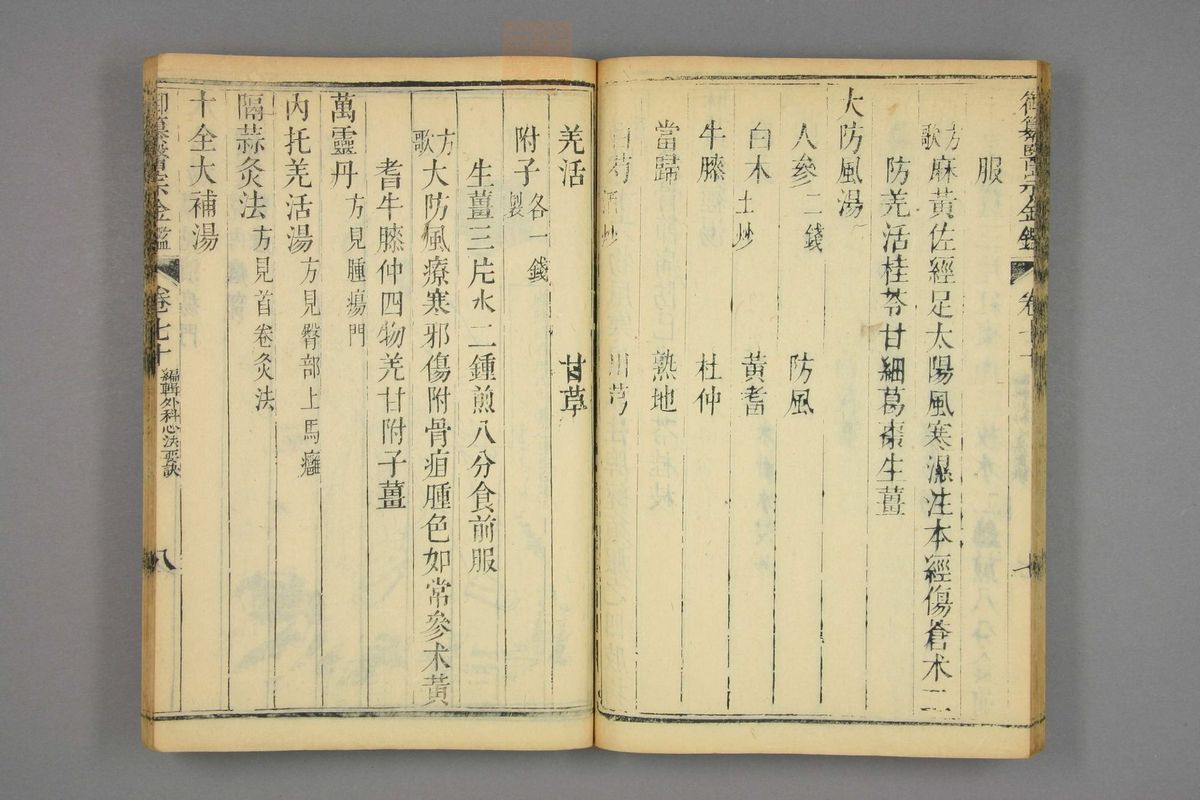 御纂醫宗金鑑 卷七十 七
服
方歌 麻黃佐經足太陽風寒濕注本經傷蒼术二
防羌活桂苓甘細葛棗生薑
大防風湯
人參二錢 防風
白术土炒 黃耆
牛膝 杜仲
當歸 熟地
白芍酒炒 川芎
羌活 甘草
附子製各一錢
生薑三片水二鍾煎八分食前服
方歌 大防風療寒邪傷附骨疽腫色如常參术黃
耆牛膝仲四物羌甘附子薑
萬靈丹方見腫瘍門
內托羌活湯方見臀部上馬癰
隔蒜灸法方見首卷灸法
十全大補湯
御纂醫宗金鑑 卷七十 編輯外科心法要訣 八